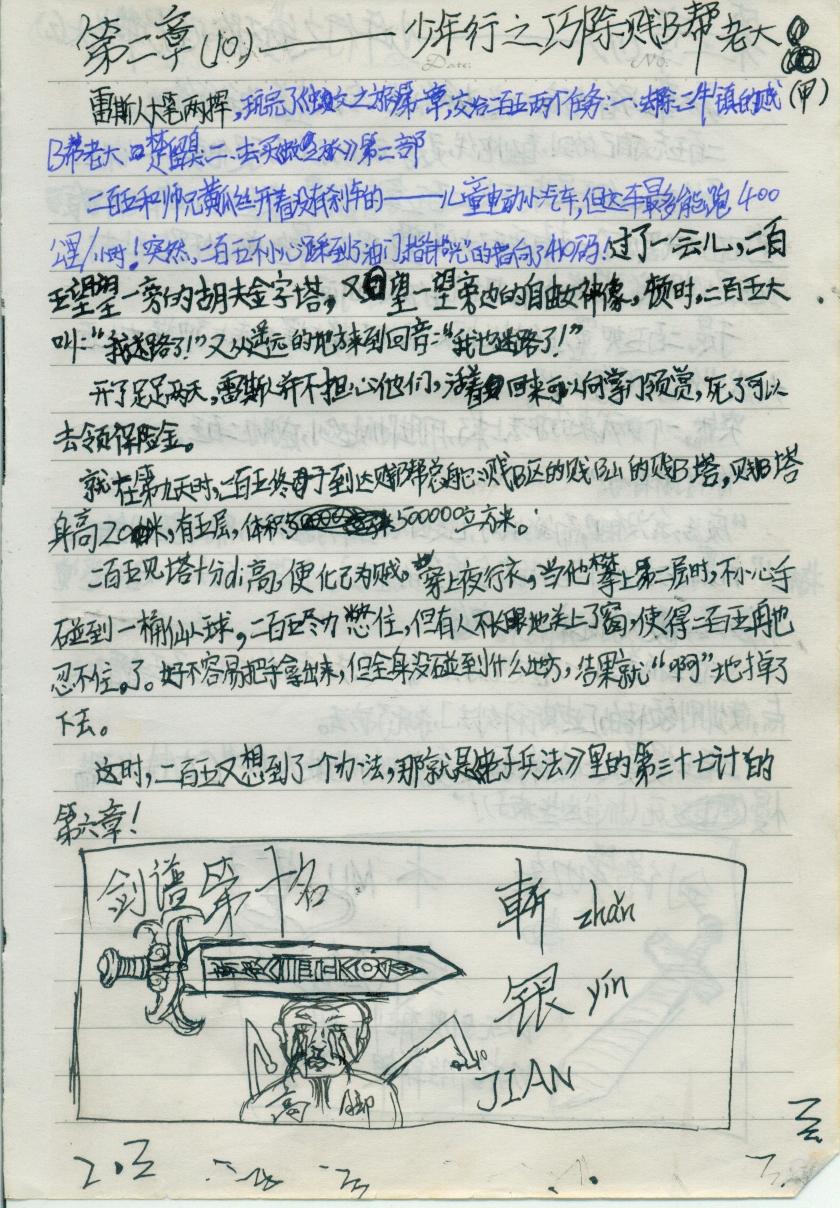 第二章(10)——少年行之巧除贱B帮老大
(甲)
雷斯人大笔两挥,玩完了《之旅》第一章,交给二百五两个任务:一、去除二牛镇的贱
B帮老大楚留臭.二、去买》第二部
二百五和师兄黄瓜丝开着没有刹车的——儿童电动小汽车,但这车最多能跑400
公里/小时!突然,二百五不小心踩到了油门,指针"光"的指向了410码.过了一会儿,二百
五望望一旁的胡夫金字塔,又望一望旁边的自由女神像,顿时,二百五大
叫:"我迷路了!"又从遥远的地方来到回音:"我也迷路了!"
开了足足两天,雷斯人并不担心他们,活着回来可以向掌门领赏,死了可以
去领保险金。
就在第九天时,二百五终于到达贱B帮总舵:贱B区的贱B山的贱B塔,贱B塔
身高20米,有五层,体积500000立方米。
二百五见塔十分di高,便化己为贱,穿上夜行衣,当他攀上第二层时,不小心手
碰到一桶仙人球,二百五尽力憋住,但有人不长眼地关上了窗,使得二百五再也
忍不住了。好不容易把手拿出来,但全身没碰到什么地方,结果就"啊"地掉了
下去。
这时,二百五又想到了一个办法,那就是子兵法》里的第三十七计的
第六章!
剑谱第十名
斩 zhǎn
银 yín
JIAN
高 脚